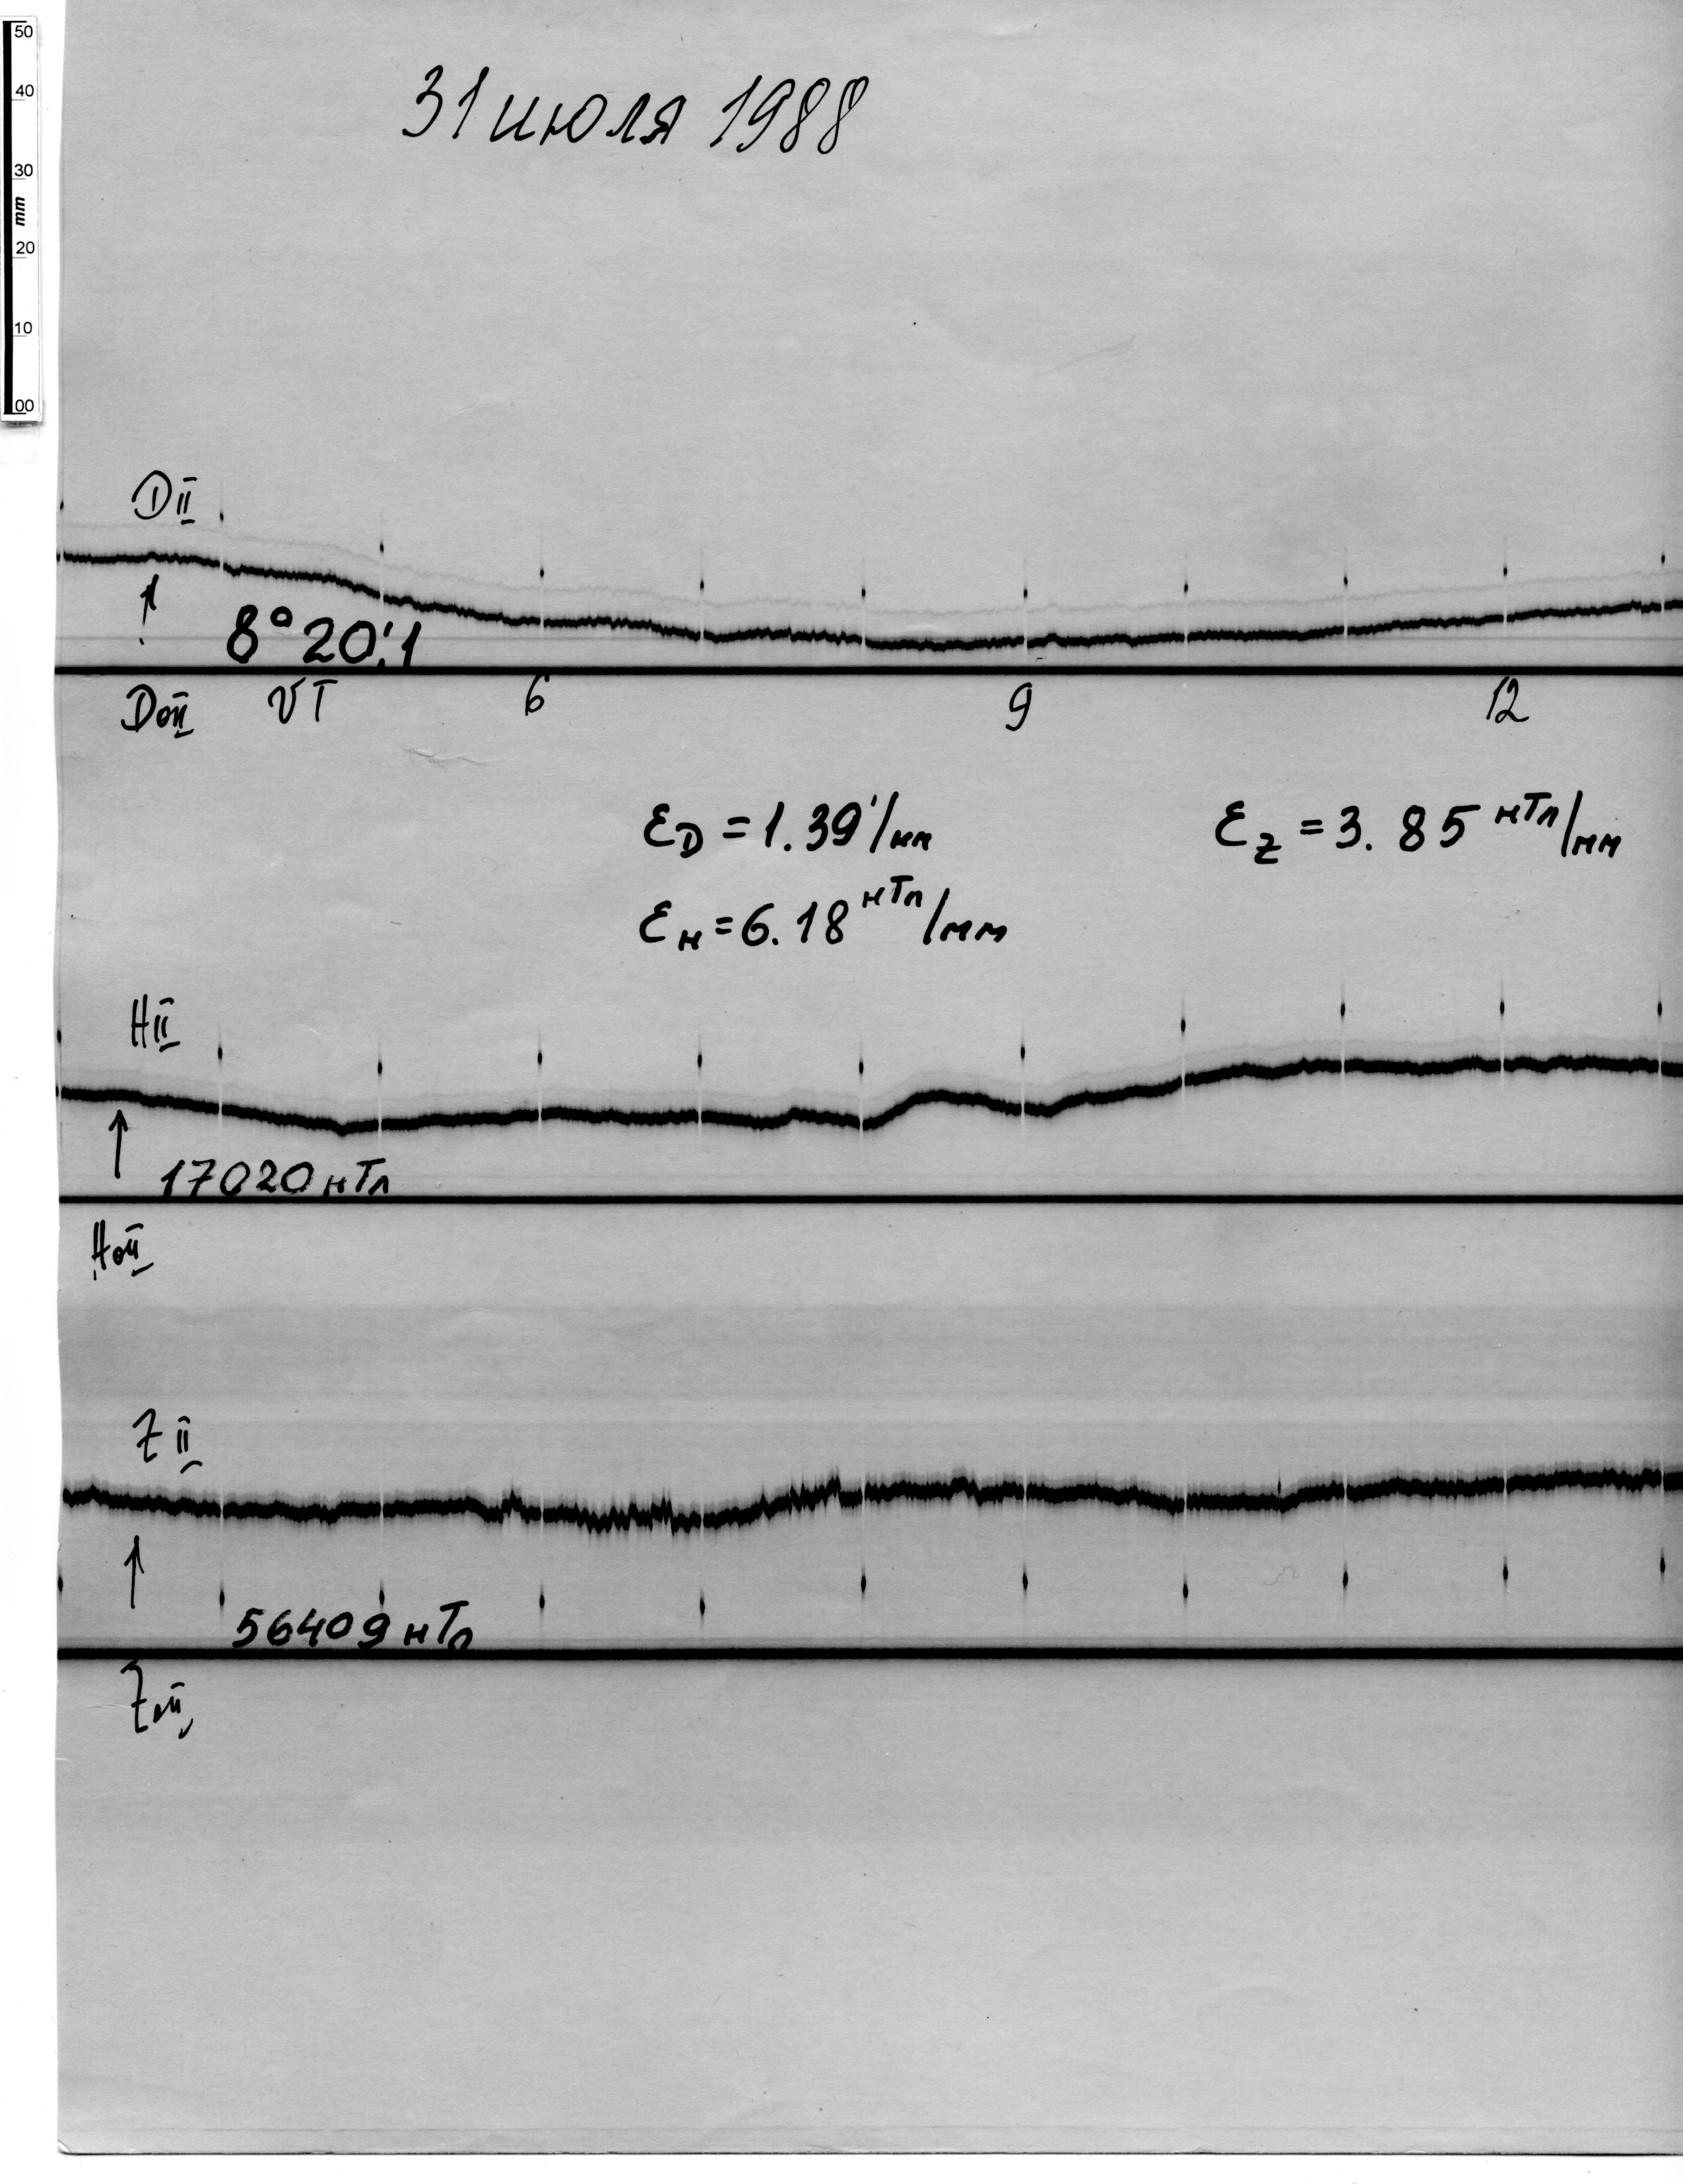 50
40
30
mm
20
10
00
31 июля 1988
DII
8°20'.1
D0II UT 6 9 12
ED = 1.39'/мм
EZ = 3.85 нТл/мм
EH = 6.18 нТл/мм
HII
17020 нТл
H0II
ZII
56409 нТл
Z0II